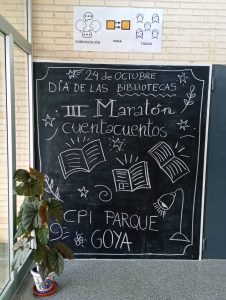 COMUNICACIÓN PARA TODOS
24 de OCTUBRE
DÍA DE LAS BIBLIOTECAS
III Maratón
cuentacuentos
CPI PARQUE
GOYA